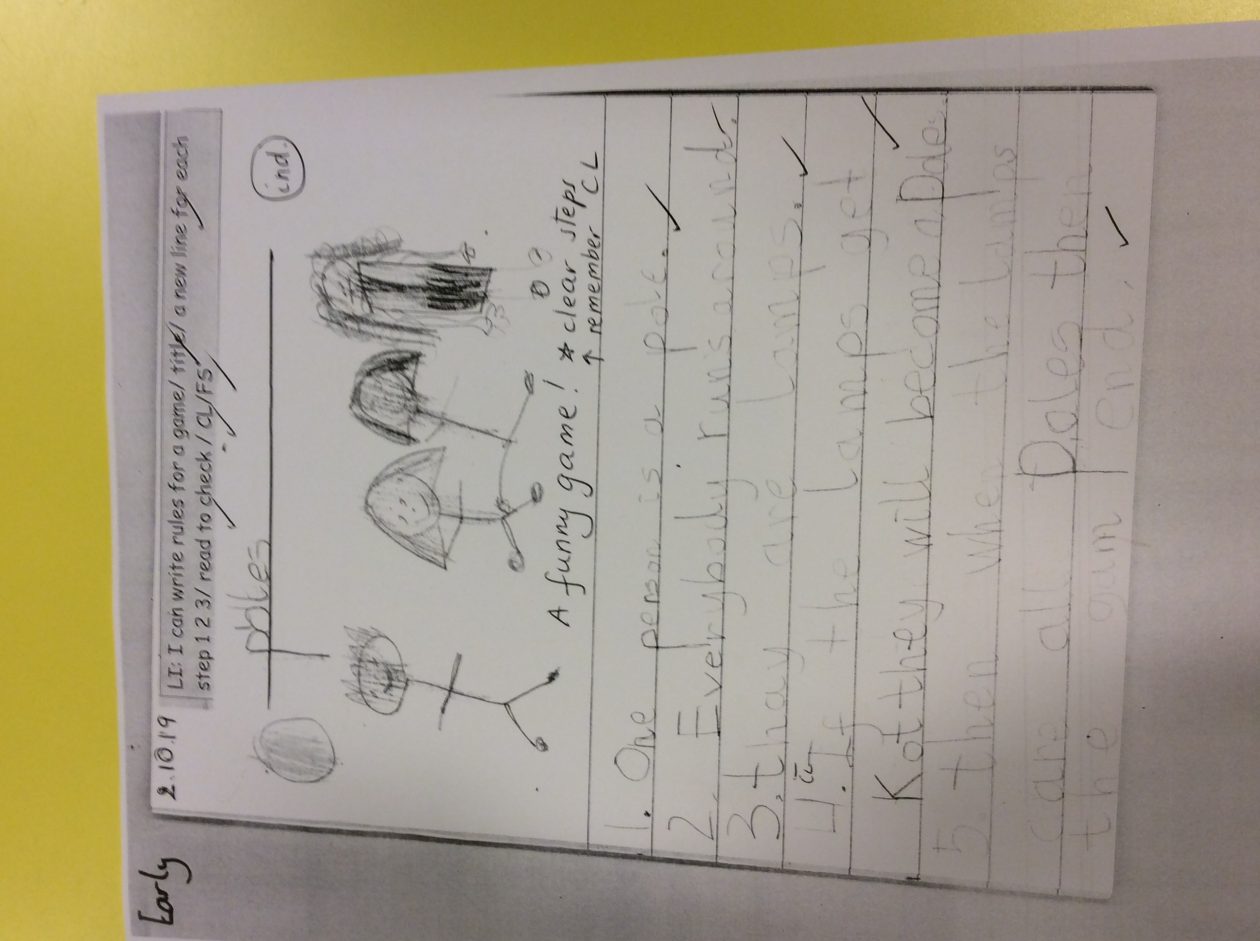 Early
2.10.19
LI: I can write rules for a game/ title/ a new line for each
step 1 2 3/ read to check / CL/FS
ind.
poles
A funny game! * clear steps
↑ remember CL
1. One person is a pole.
2. Evelrybody runs around.
3. thay are Lamps.
4. If the Lamps get
Kot they will become a Pole.
5. then when the Lamps
are all Poles then
the gam end.